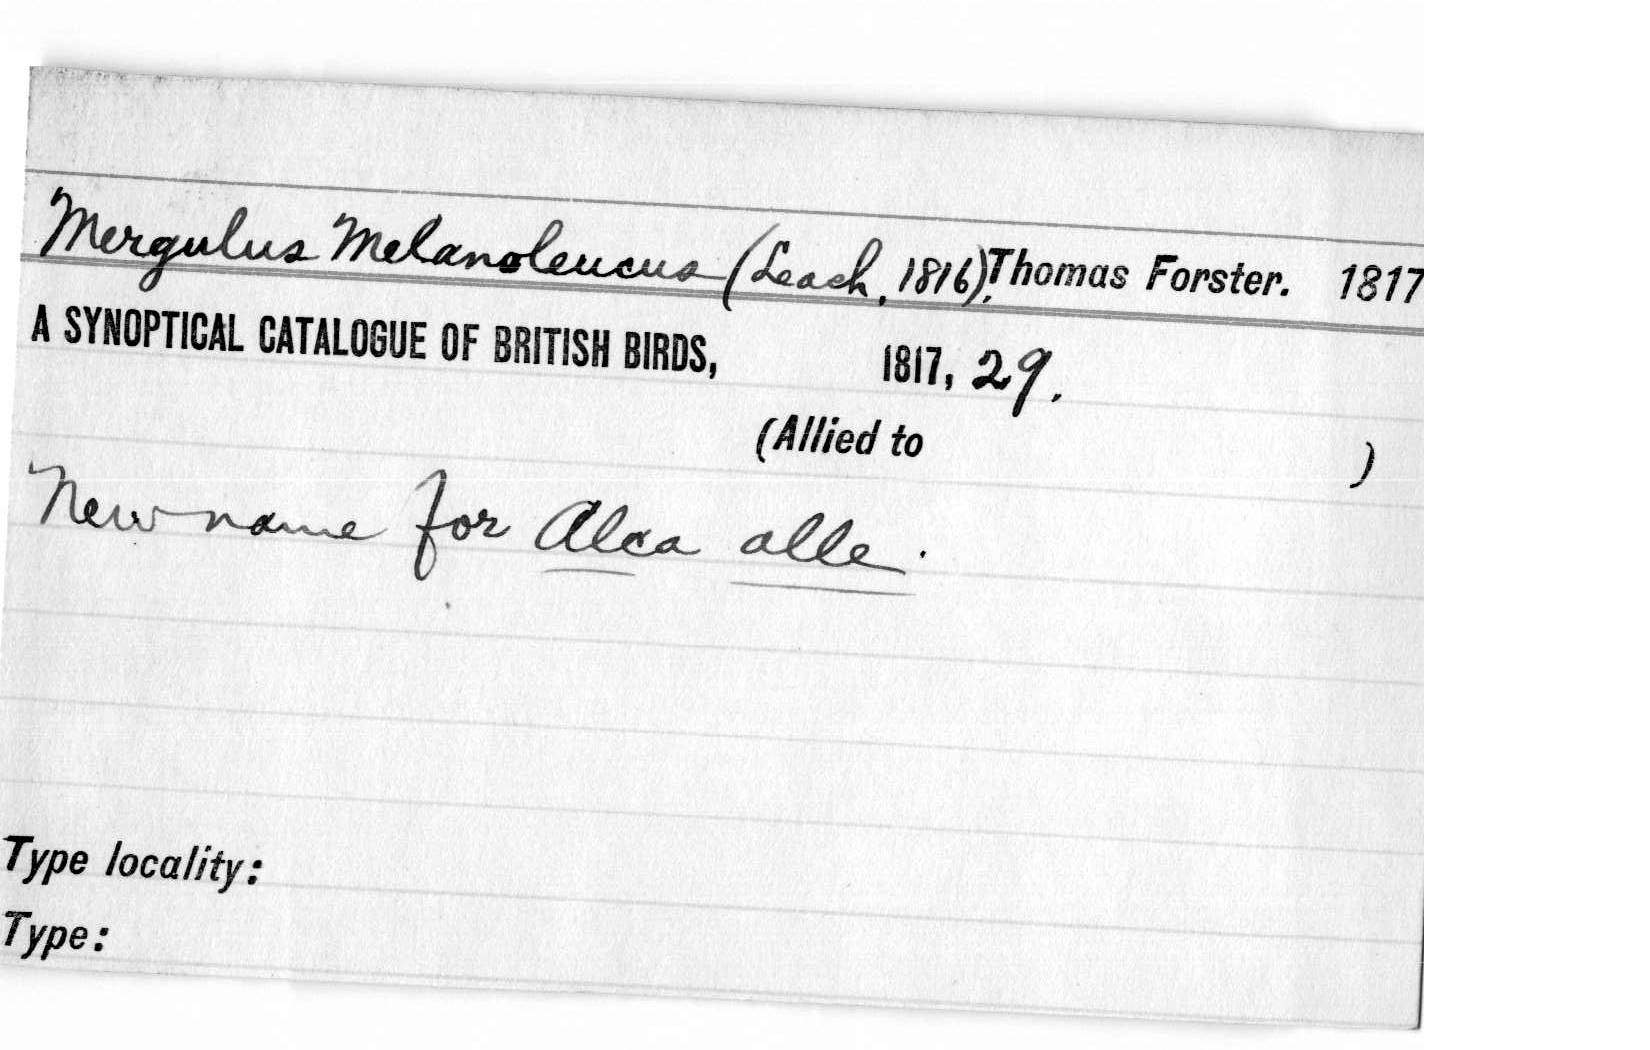 Mergulus Melanoleucus (Leach, 1816), Thomas Forster. 1817
A SYNOPTICAL CATALOGUE OF BRITISH BIRDS, 1817, 29.
(Allied to )
New name for Alca alle.
Type locality:
Type: